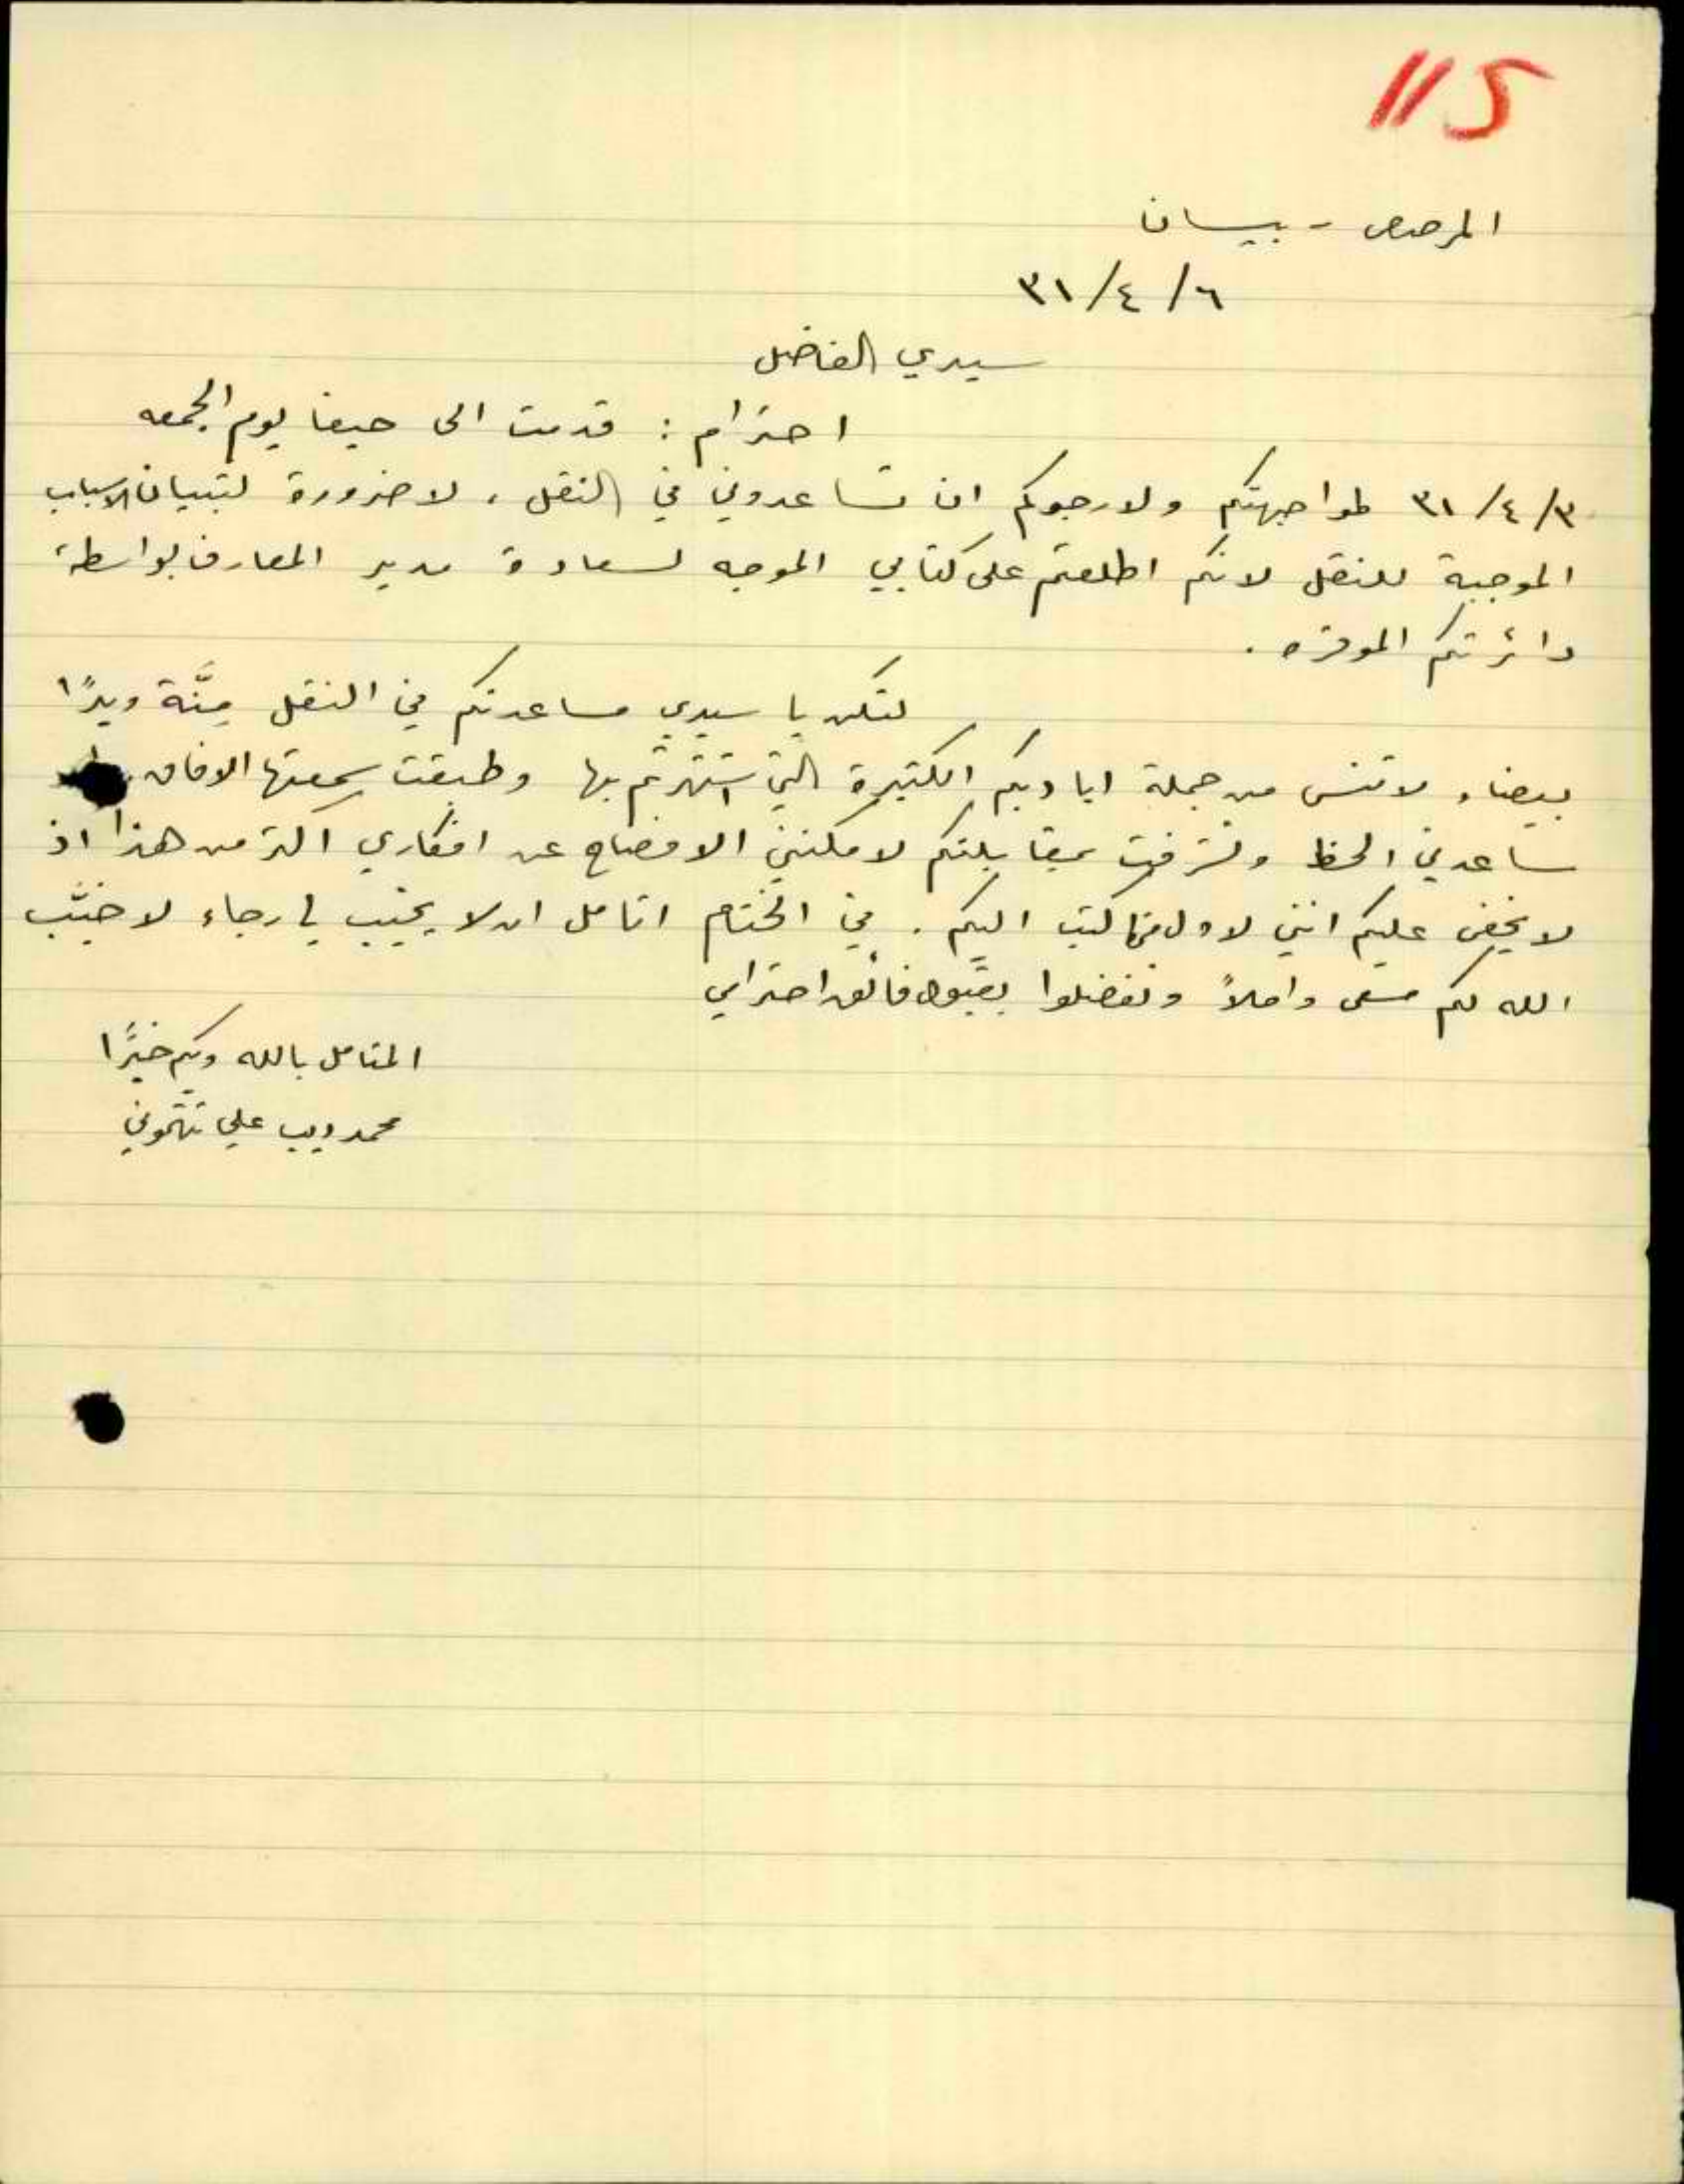 115
المرصص - بيسان
٦/٤/٣١
سيدي الفاضل
احترام : قدمت الى حيفا يوم الجمعه
٣/٤/٣١ لمواجهتكم ولارجوكم ان تساعدوني في النقل ، لا ضرورة لتبيان الاسباب
الموجبة للنقل لانكم اطلعتم على كتابي الموجه لسعادة مدير المعارف بواسطة
دائرتكم الموقره .
لتكن يا سيدي مساعدتكم في النقل مِنَّة ويدًا
بيضاء لا تنسى من جملة اياديكم الكثيرة التي اشتهرتم بها وطبقت سمعتها الافاق
ساعدني الحظ وتشرفت بمقابلتكم لا يمكنني الافصاح عن افكاري اكثر من هذا اذ
لا يخفى عليكم انني لاول كتبت اليكم . في الختام اتامل ان لا يخيب لي رجاء لا خيَّب
الله لكم مسعى واملاً وتفضلوا بقبول فائق احترامي
المتامل بالله وبكم خيرًا
محمد ديب علي